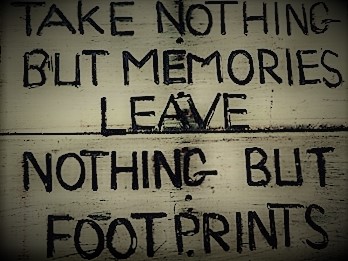 TAKE NOTHING
BUT MEMORIES
LEAVE
NOTHING BUT
FOOTPRINTS